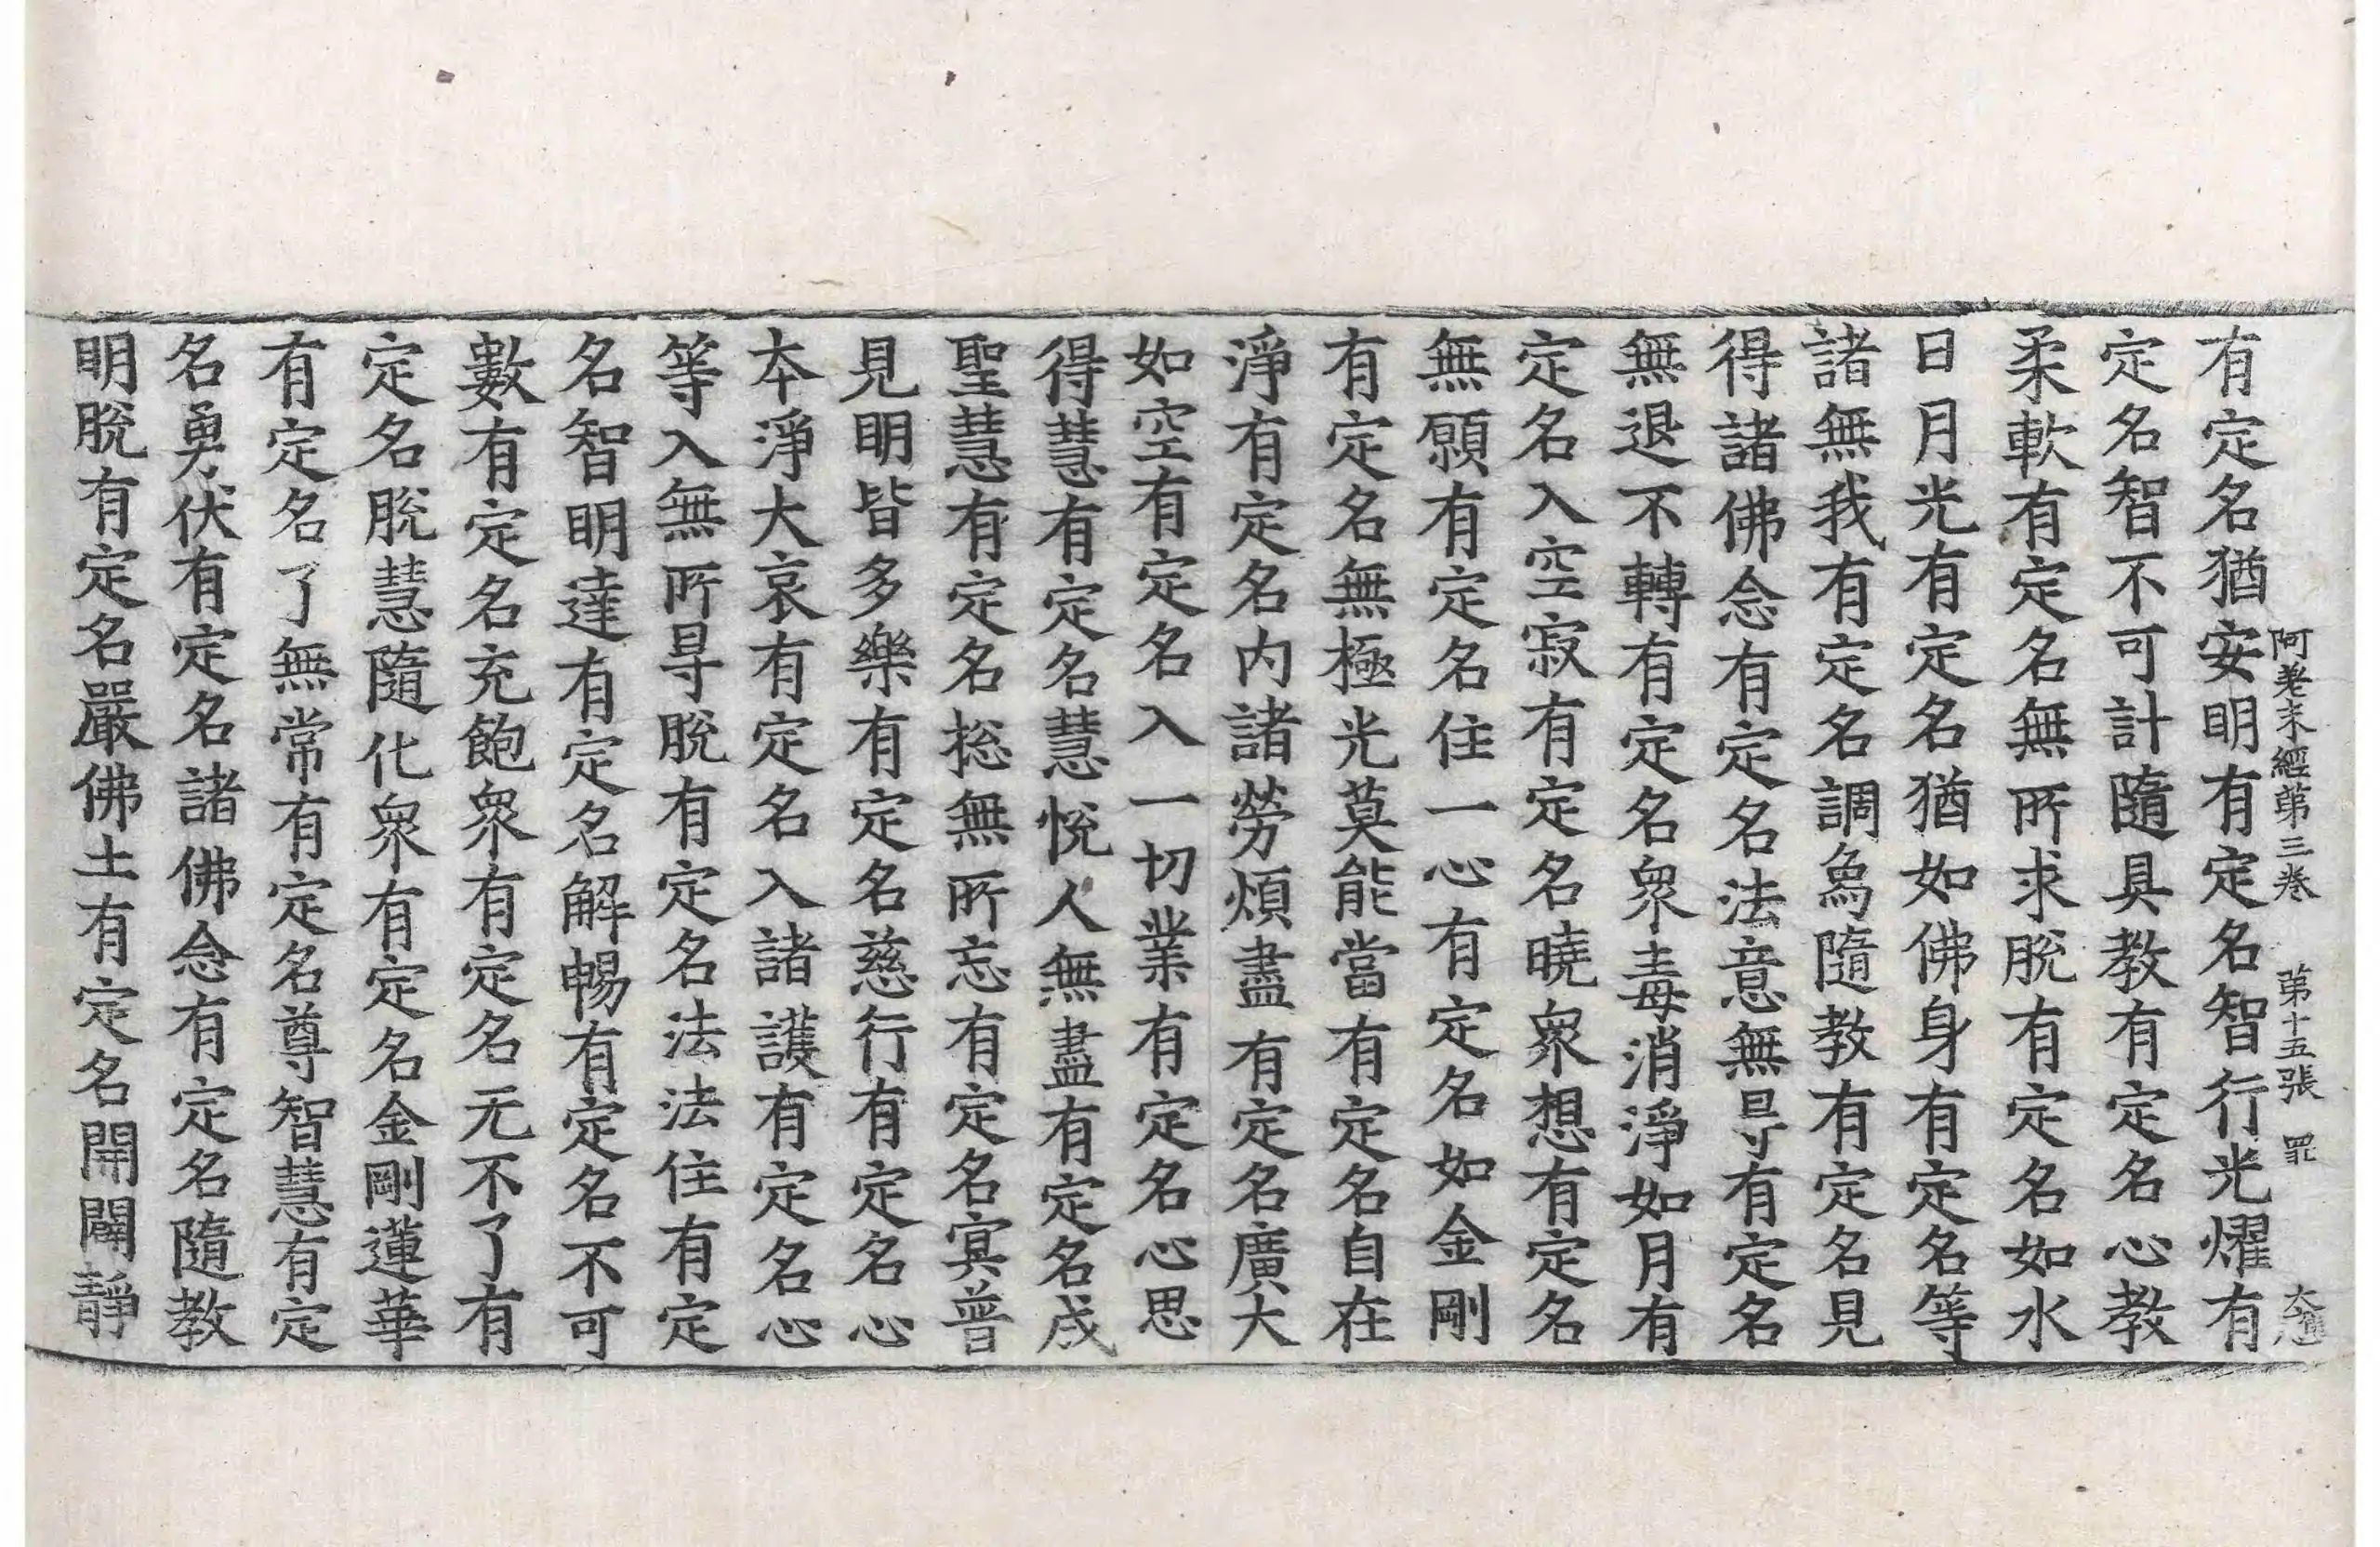 阿差末經第三卷　第十五張　罪
有定名猶安明有定名智行光耀有
定名智不可計隨具教有定名心教
柔軟有定名無所求脫有定名如水
日月光有定名猶如佛身有定名等
諸無我有定名調為隨教有定名見
得諸佛念有定名法意無㝵有定名
無退不轉有定名衆毒消淨如月有
定名入空寂有定名曉衆想有定名
無願有定名住一心有定名如金剛
有定名無極光莫能當有定名自在
淨有定名內諸勞煩盡有定名廣大
如空有定名入一切業有定名心思
得慧有定名慧悅人無盡有定名戌
聖慧有定名捴無所忘有定名㝠普
見明皆多樂有定名慈行有定名心
本淨大哀有定名入諸護有定名心
等入無所㝵脫有定名法法住有定
名智明達有定名解暢有定名不可
數有定名充飽衆有定名无不了有
定名脫慧隨化衆有定名金剛蓮華
有定名了無常有定名尊智慧有定
名勇伏有定名諸佛念有定名隨教
明脫有定名嚴佛土有定名開闡靜